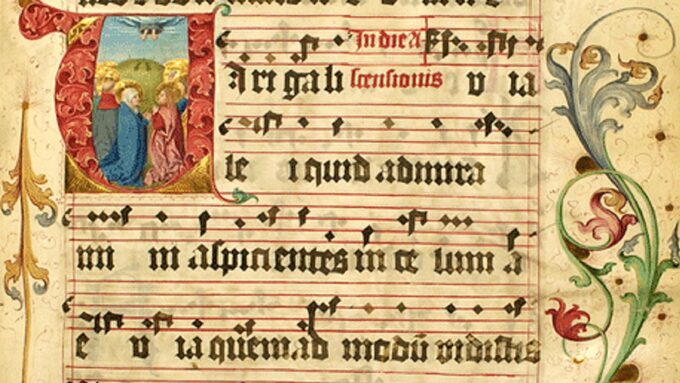 In die a
Viri gali scensionis v ia
le i quid admira
mi ni aspicientes in ce lum a
e v ia quemad modū vidistis